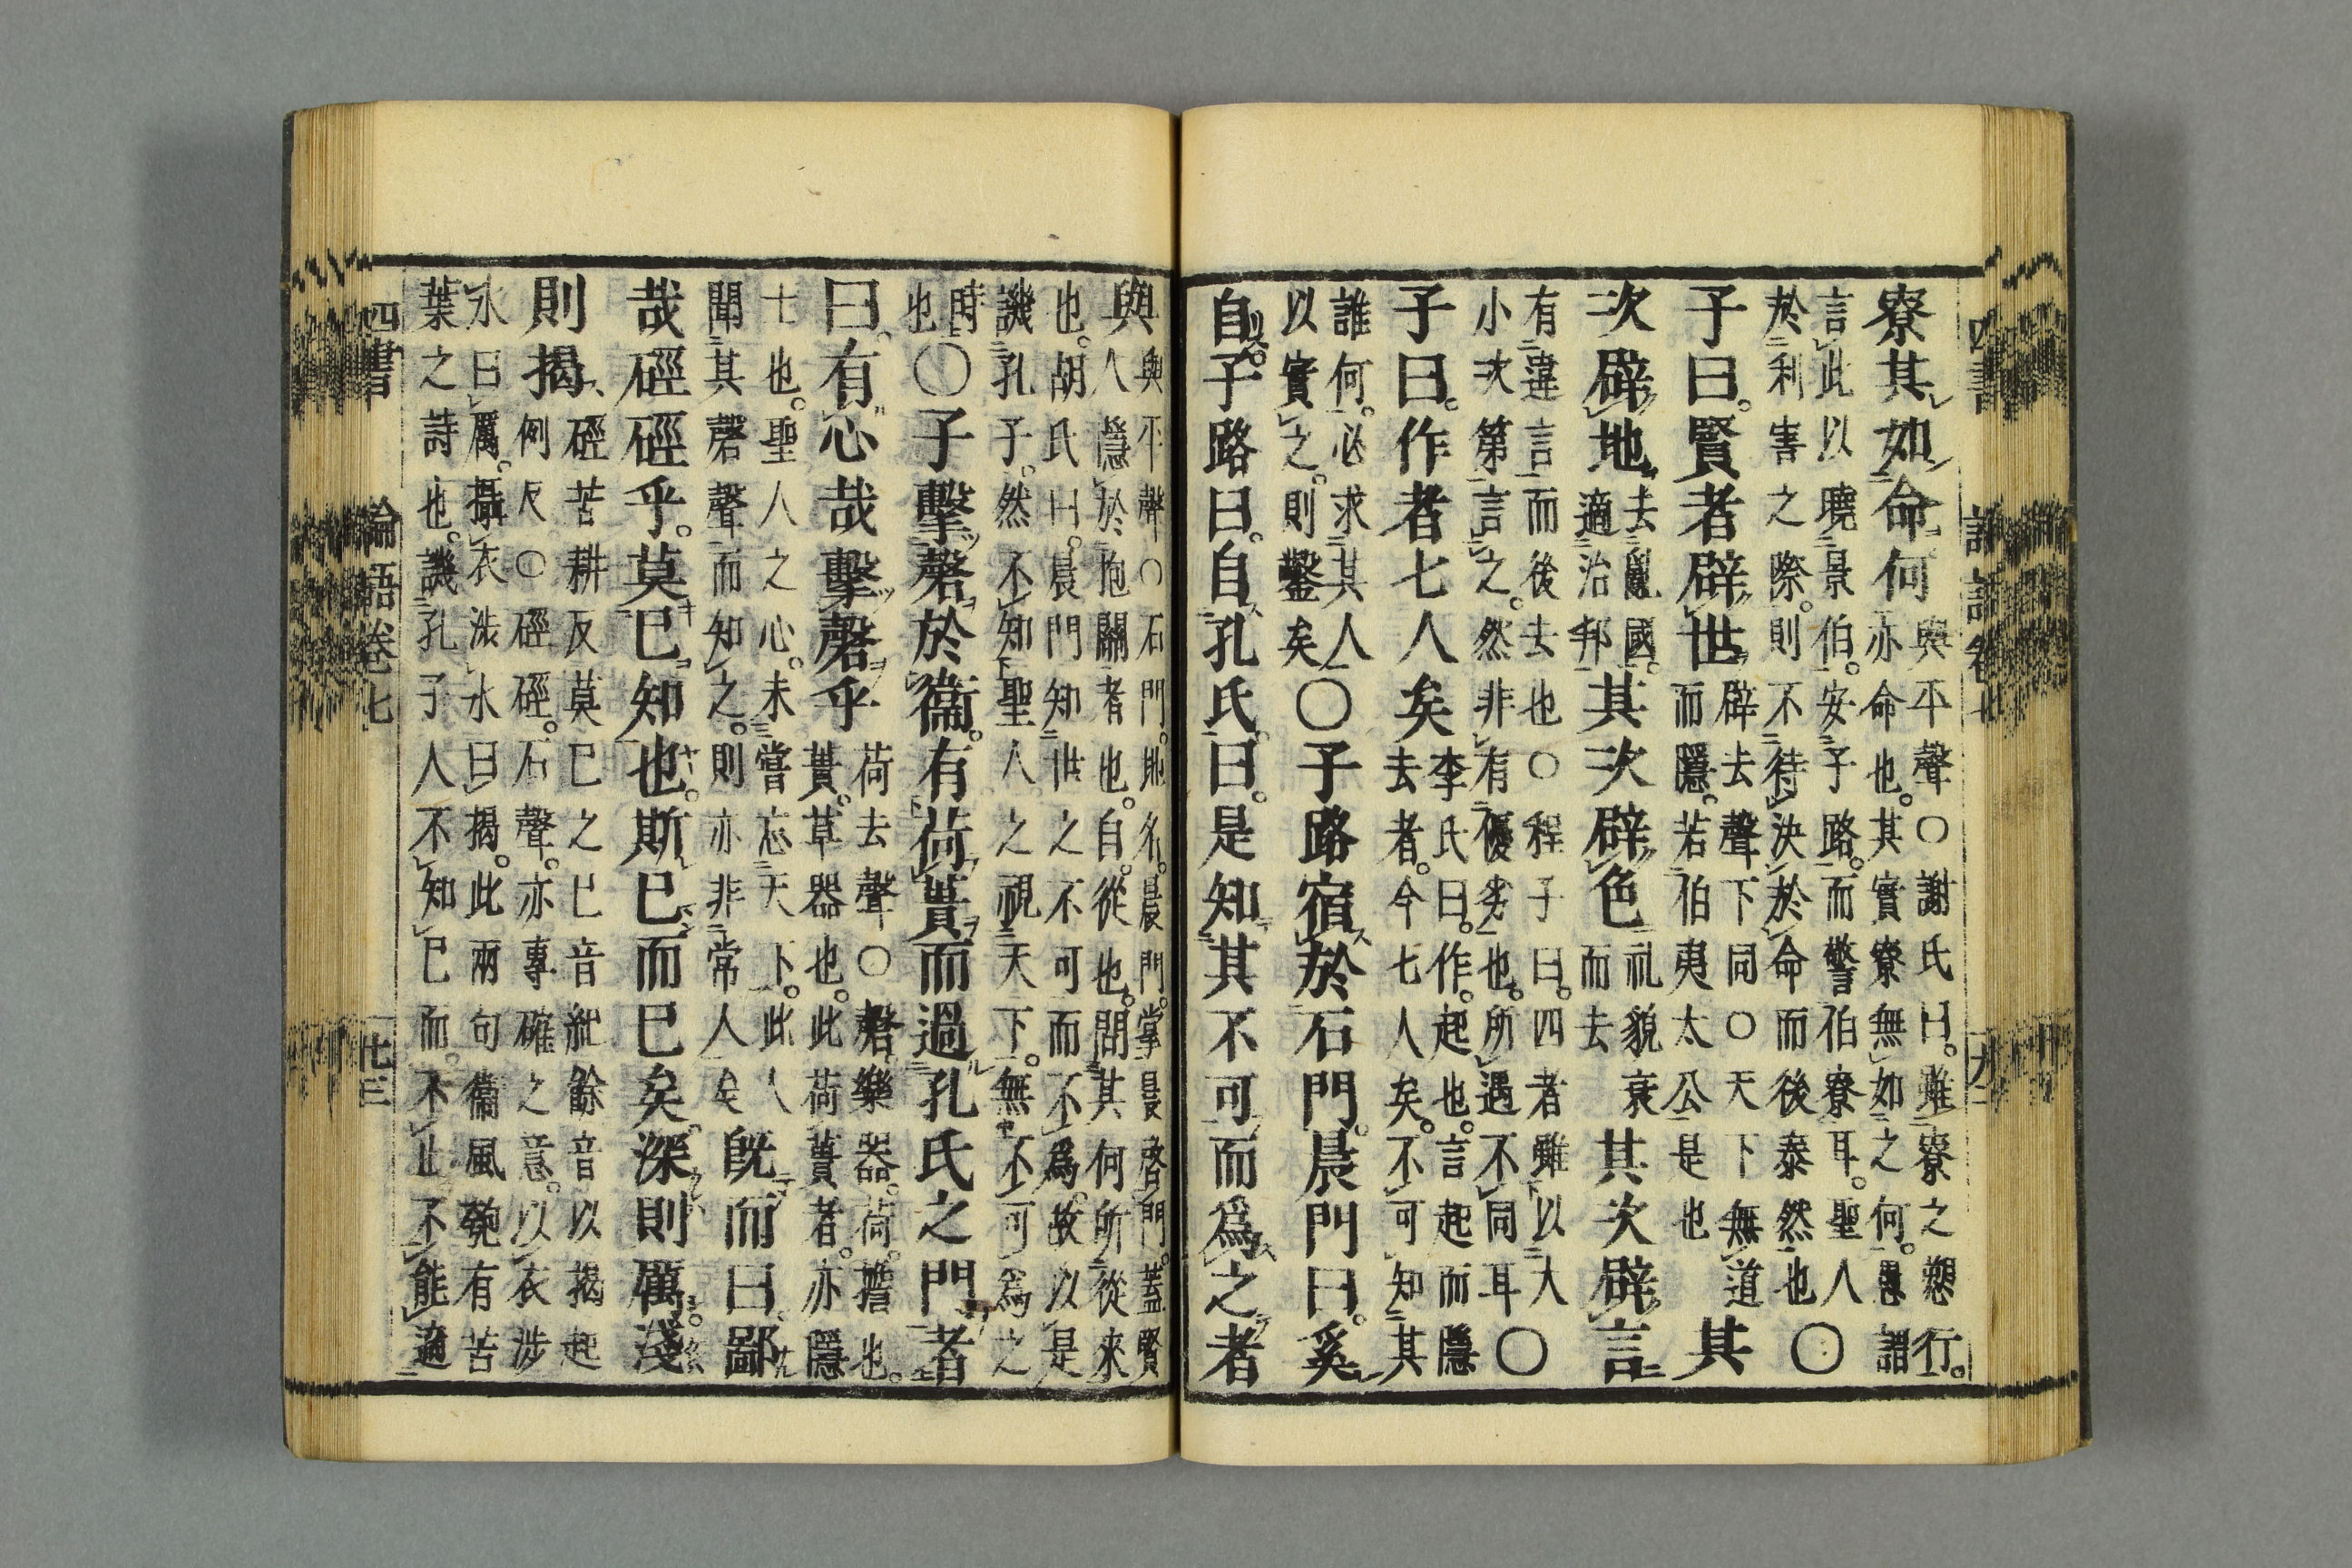 寮其如命何
與平聲○謝氏曰。雖寮之愬行。
亦命也。其實寮無如之何。愚謂
言此以曉景伯。安子路。而警伯寮耳。聖人
於利害之際。則不待決於命而後泰然也
○
子曰。賢者辟世
辟去聲下同○天下無道
而隱。若伯夷太公是也
其
次辟地
去亂國。
適治邦
其次辟色
礼貌衰
而去
其次辟言
有違言而後去也○程子曰。四者雖以大
小次第言之。然非有優劣也。所遇不同耳
○
子曰。作者七人矣
李氏曰。作。起也。言起而隱
去者。今七人矣。不可知其
誰何。必求其人
以實之。則鑿矣
○子路宿於石門。晨門曰。奚
自。子路曰。自孔氏。曰。是知其不可而爲之者
與
與平聲○石門。地名。晨門。掌晨啓門。蓋賢
人隱於抱關者也。自。從也。問其何所從來
也。胡氏曰。晨門知世之不可而不爲。故以是
譏孔子。然不知聖人之視天下。無不可爲之
時
也
○子擊磬於衞。有荷蕢而過孔氏之門者
曰。有心哉擊磬乎
荷去聲○磬。樂器。荷。擔也。
蕢。草器也。此荷蕢者。亦隱
士也。聖人之心。未嘗忘天下。此人
聞其磬聲而知之。則亦非常人矣
既而曰。鄙
哉硜硜乎。莫已知也。斯已而已矣。深則厲。淺
則揭
硜苦耕反莫已之已音紀餘音以揭起
例反○硜硜。石聲。亦專確之意。以衣涉
水曰厲。攝衣涉水曰揭。此兩句衞風匏有苦
葉之詩也。譏孔子人不知已而。不止不能適
四書
論語卷七
廿三